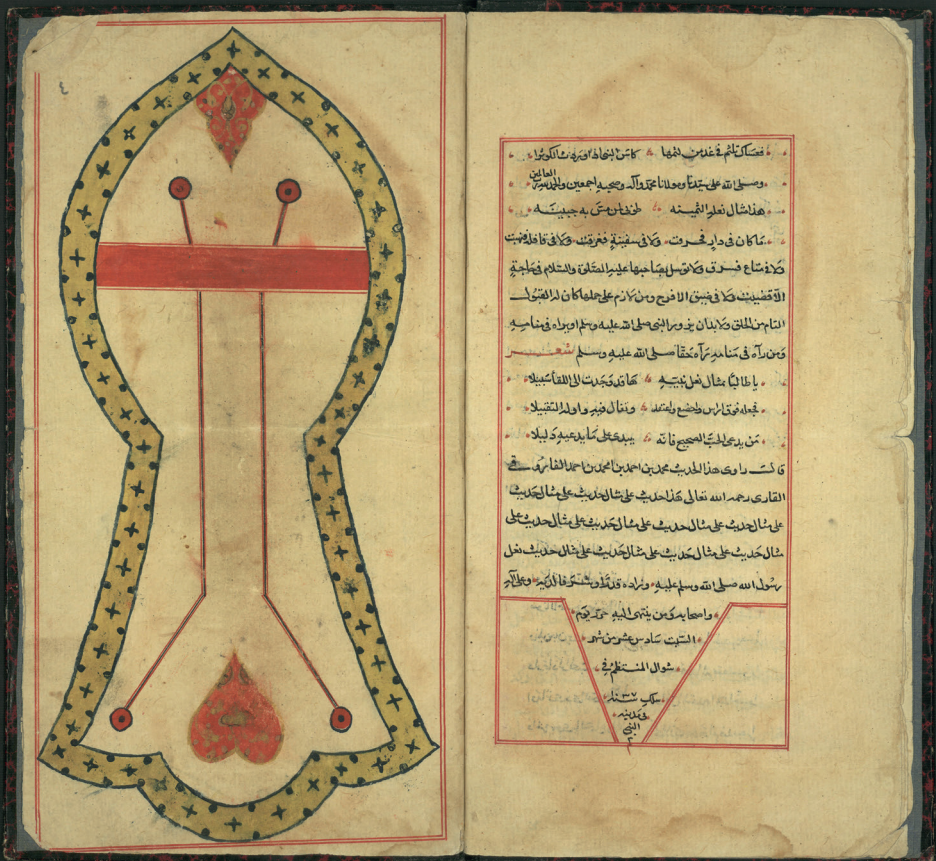 وصلى الله على سيدنا ومولانا محمد وآله وصحبه اجمعين والحمد لله رب العالمين
هذا مثال نعله الثمينه طوبى لمن مس به جبينه
ما كان في دار فحرقت ولا في سفينة فغرقت ولا في قافلة فنهبت
ولا في متاع فسرق ولا توسل بصاحبها عليه الصلوة والسلام في حاجة
الا قضيت ولا في ضيق الا فرج ومن لازم على حملها كان له القبول
التام من الخلق ولا بد ان يزور النبي صلى الله عليه وسلم او يراه في منامه
ومن رآه في منامه يراه حقا صلى الله عليه وسلم شعر
يا طالبا مثال نعل نبيه ها قد وجدت الى اللقا سبيلا
فاجعله فوق الراس واخضع واعتقد
من يدعي الحب الصحيح فانه يبدي على ما يدعيه دليلا
قالت راوى هذا الحديث محمد بن احمد بن محمد بن احمد
القارى رحمه الله تعالى هذا حديث على مثال حديث على مثال حديث
على مثال حديث على مثال حديث على مثال حديث على مثال حديث على
مثال حديث على مثال حديث على مثال حديث على مثال حديث نعل
رسول الله صلى الله وسلم عليه وزاده وعلى آله
واصحابه ومن ينتهى اليه يوم
السبت سادس عشر من شهر
شوال المنتظم في
سلك سنة ٣٧
في مدينة
النبي
٤